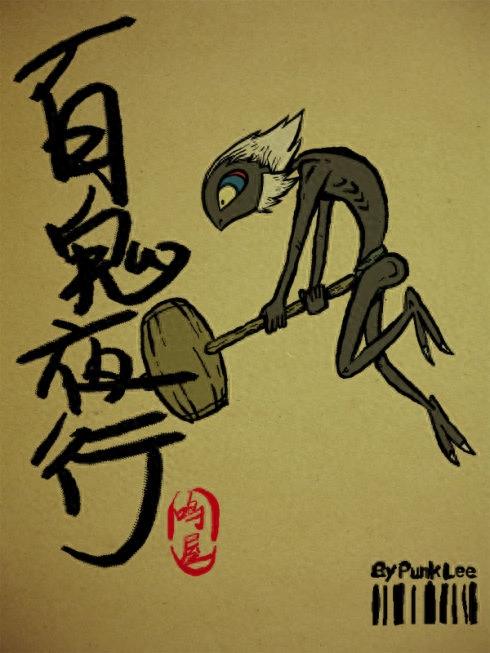 百鬼夜行
鸣屋
By Punk Lee